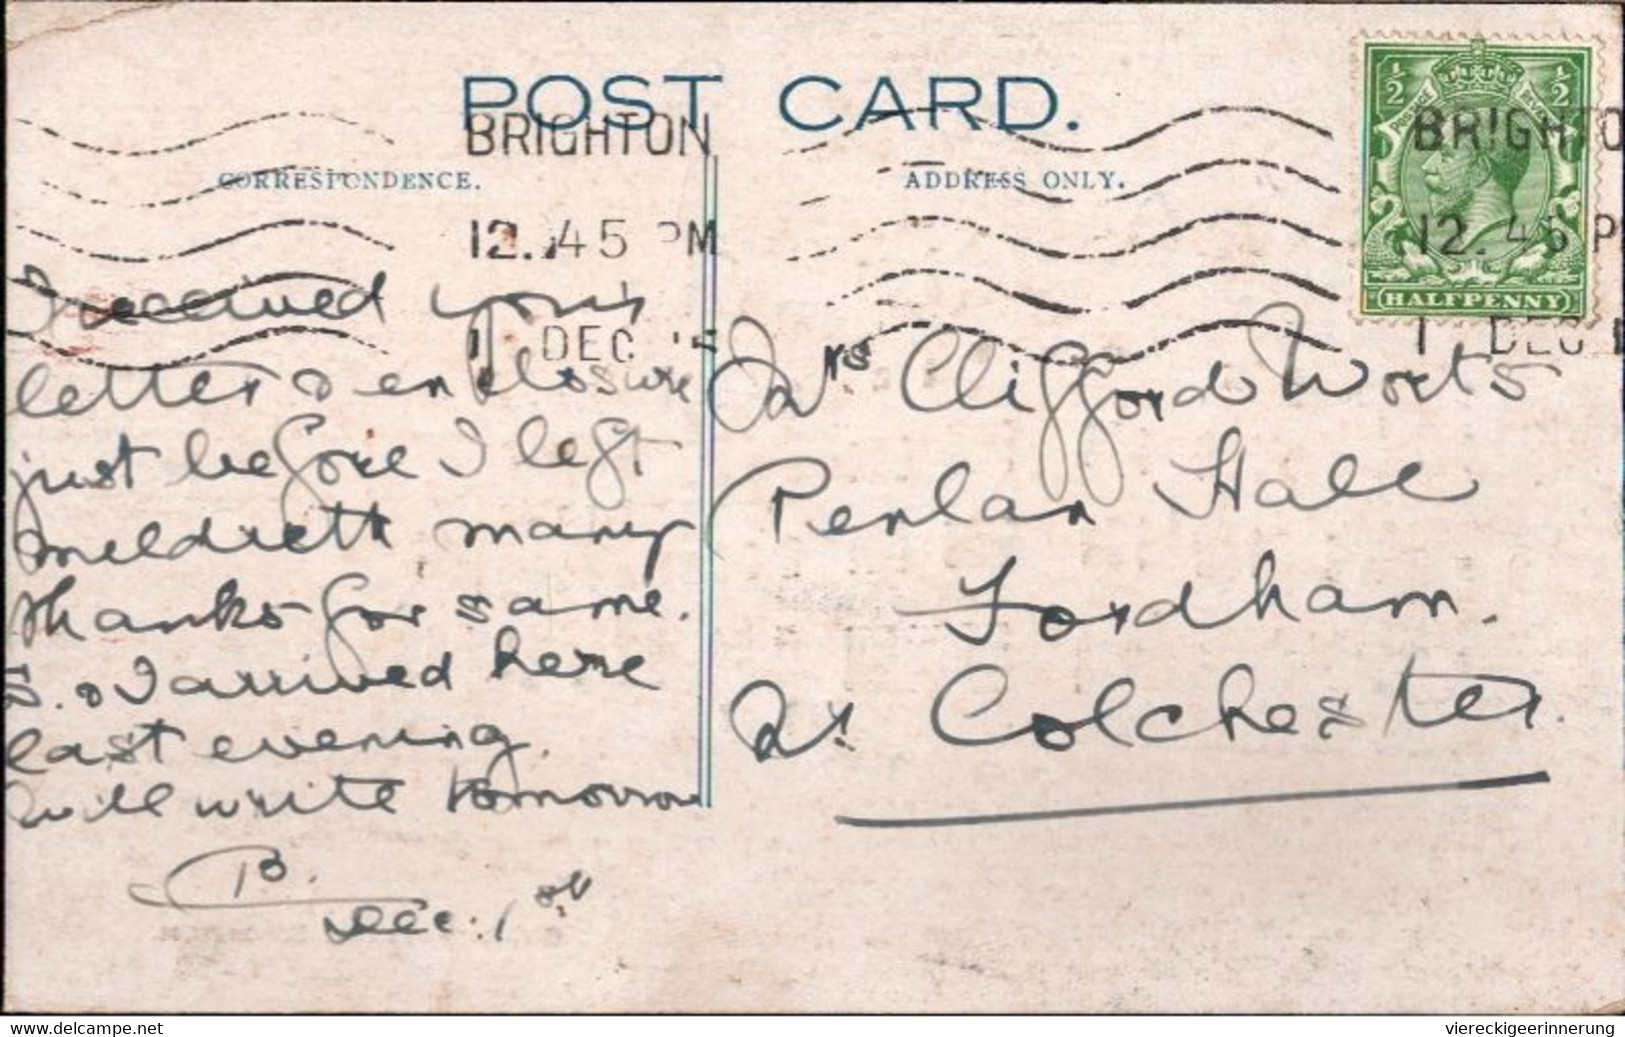 POST CARD.
BRIGHTON
CORRESPONDENCE.
12.45 PM
1 DEC 15
I received your
letter & enclosure
just before I left
meldreth many
thanks for same.
B. & I arrived here
last evening.
Will write tomorrow
B.
Dec. 1st
ADDRESS ONLY.
1/2
1/2
BRIGHTO
12.45 P
HALFPENNY
1 DEC 1
Mrs Clifford Worts
Penlan Hall
Fordham.
Nr. Colchester.
www.delcampe.net
viereckigeerinnerung